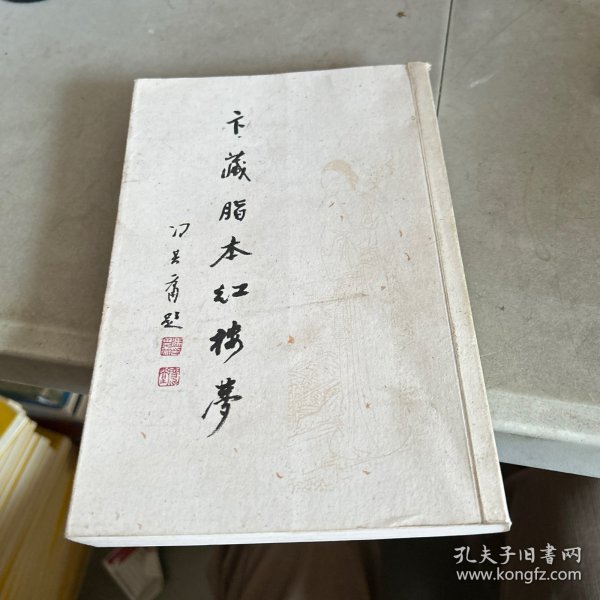 卞藏脂本红楼梦
冯其庸题
孔夫子旧书网
www.kongfz.com